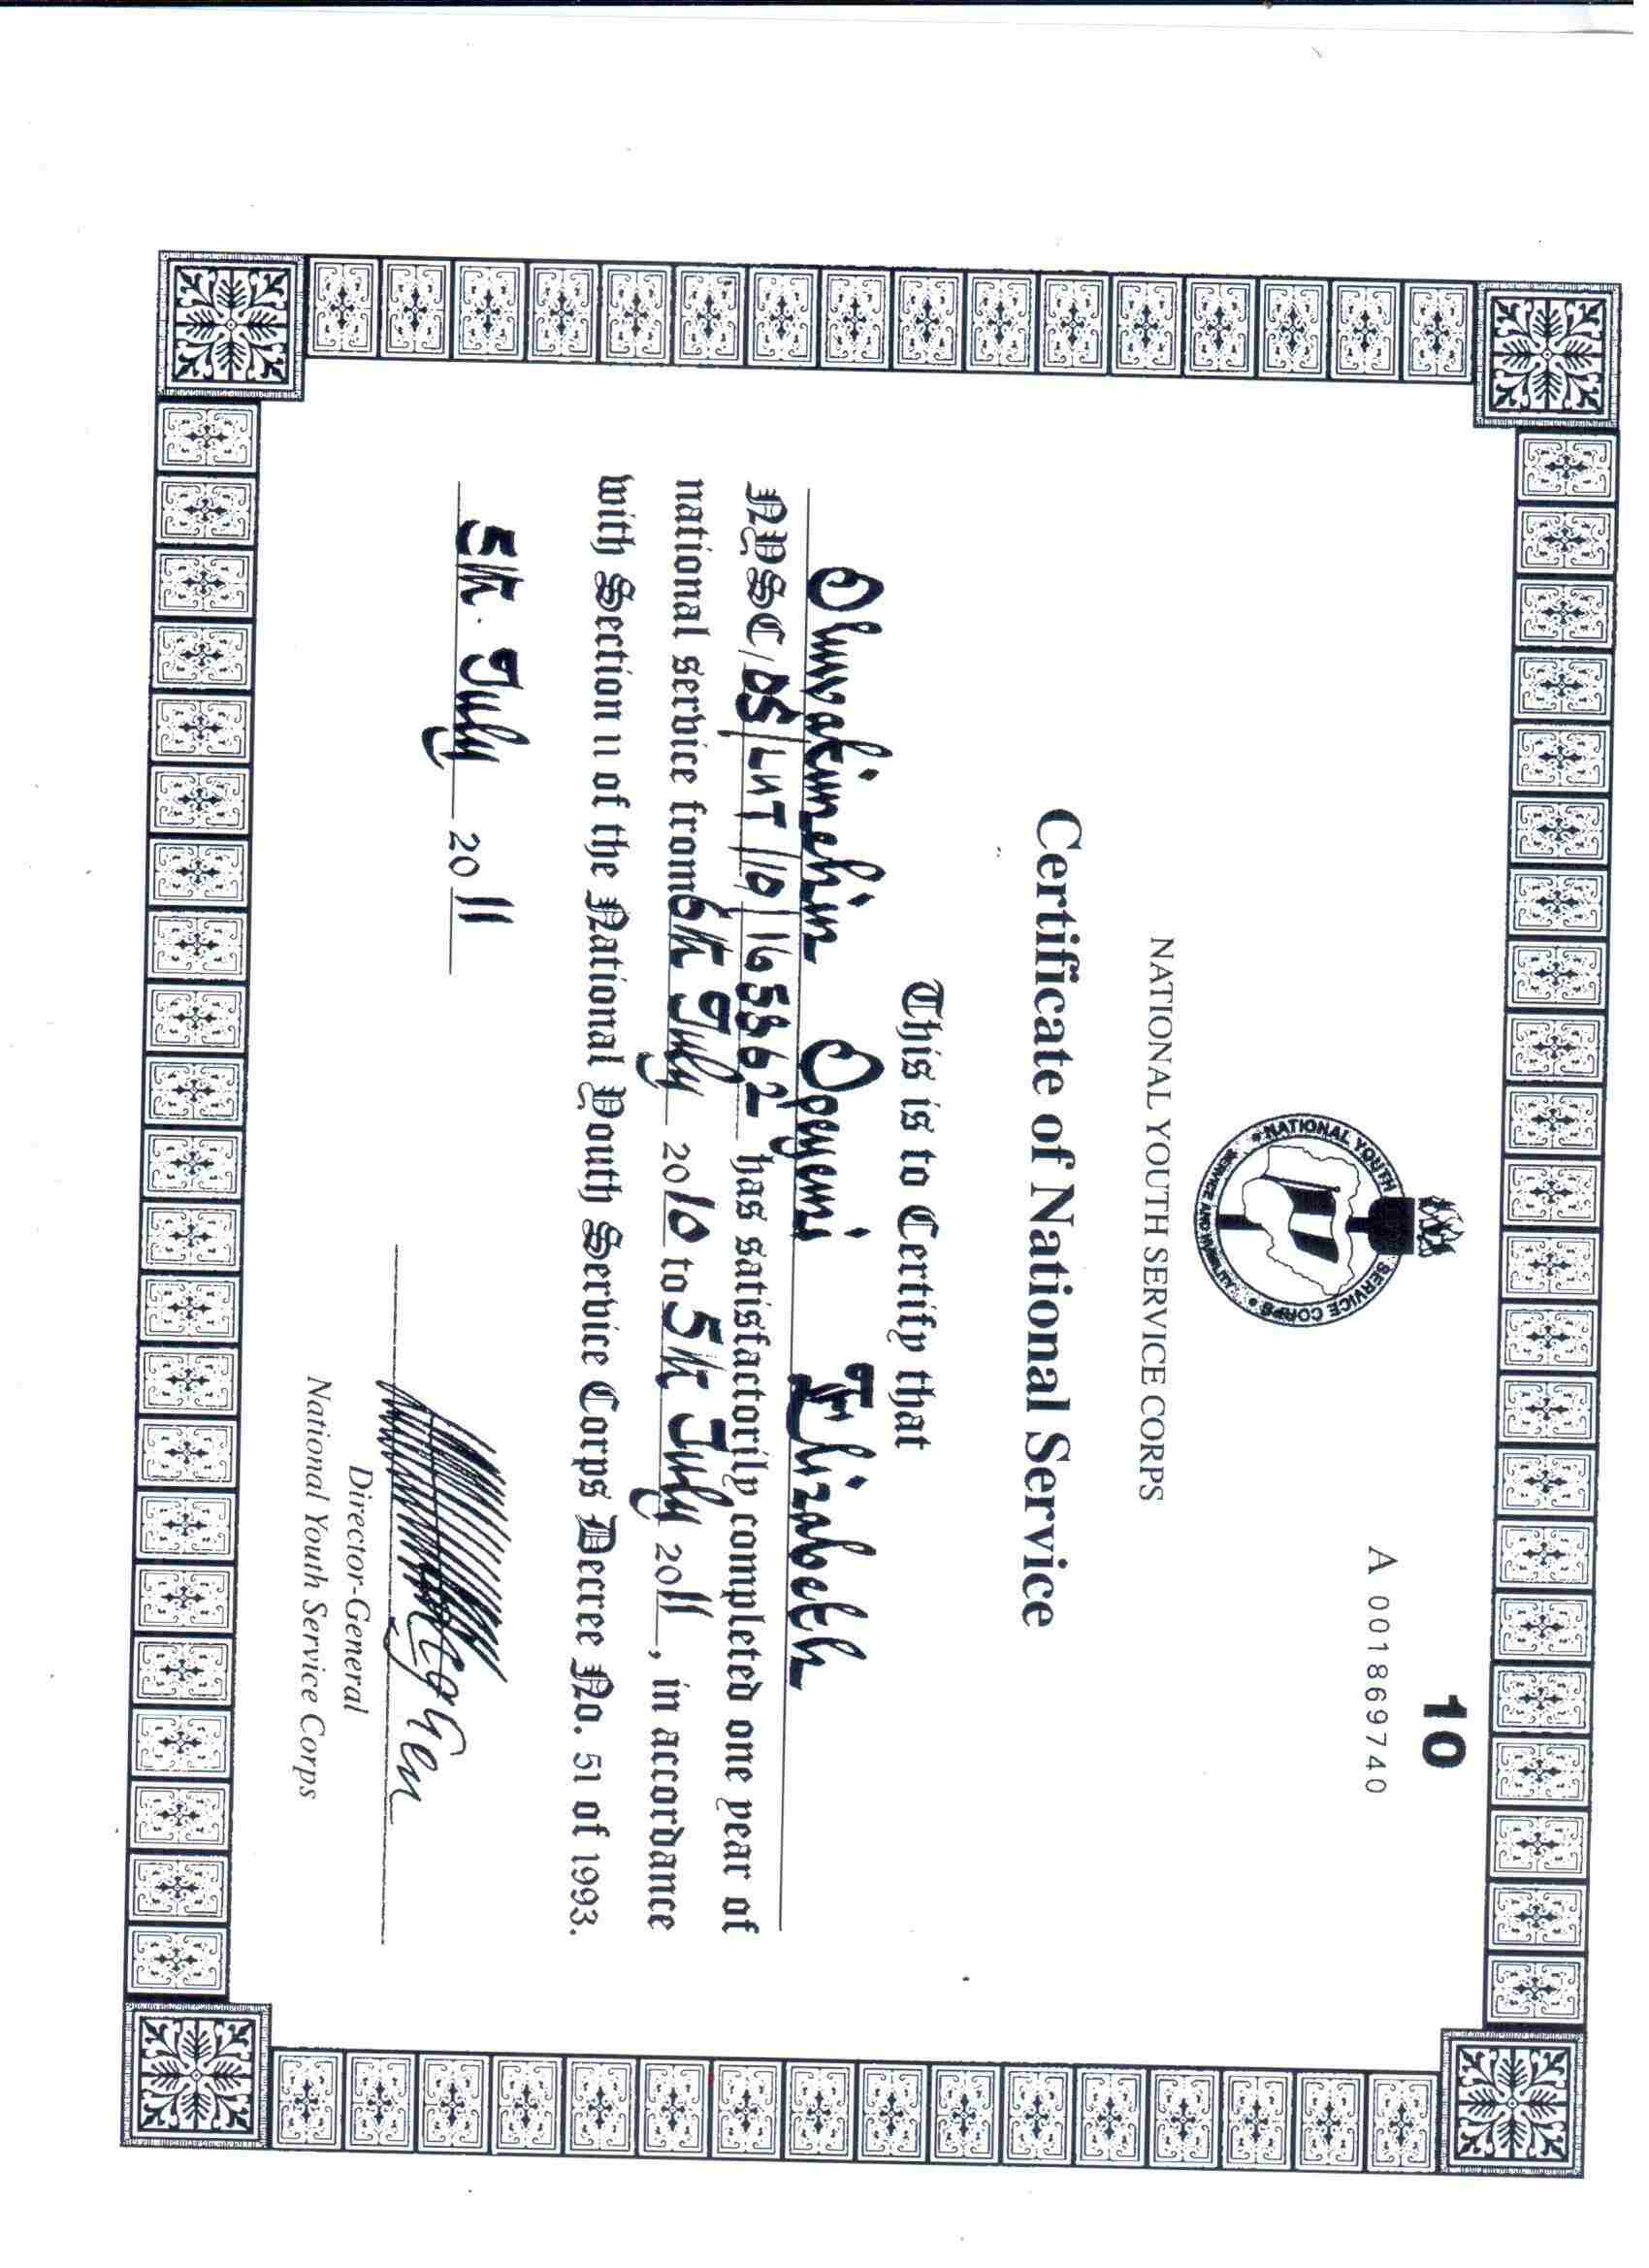 10
A 001869740
NATIONAL YOUTH SERVICE CORPS
SERVICE AND HUMILITY
NATIONAL YOUTH SERVICE CORPS
Certificate of National Service
This is to Certify that
Oluwakimehin Opeyemi Elizabeth
NYSC/DS/LNT/10/165362 has satisfactorily completed one year of
national service from 6th July 2010 to 5th July 2011, in accordance
with Section 11 of the National Youth Service Corps Decree No. 51 of 1993.
5th July 2011
Director-General
National Youth Service Corps